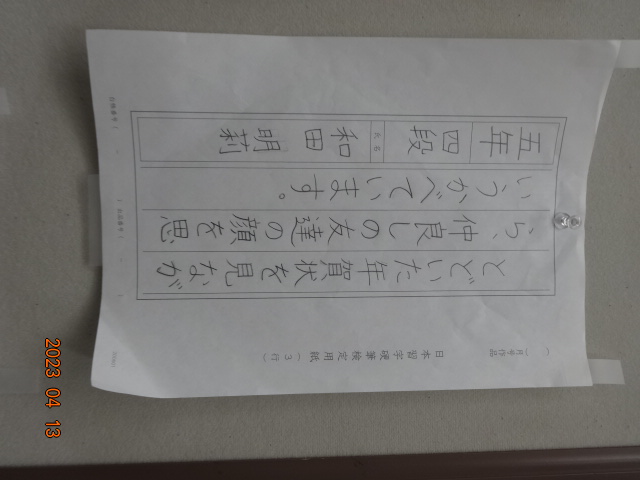 日本習字硬筆検定用紙（３行）
一月号作品
とどいた年賀状を見なが
ら、仲良しの友達の顔を思
いうかべています。
五年
四段
氏名
和田明莉
2023 04 13